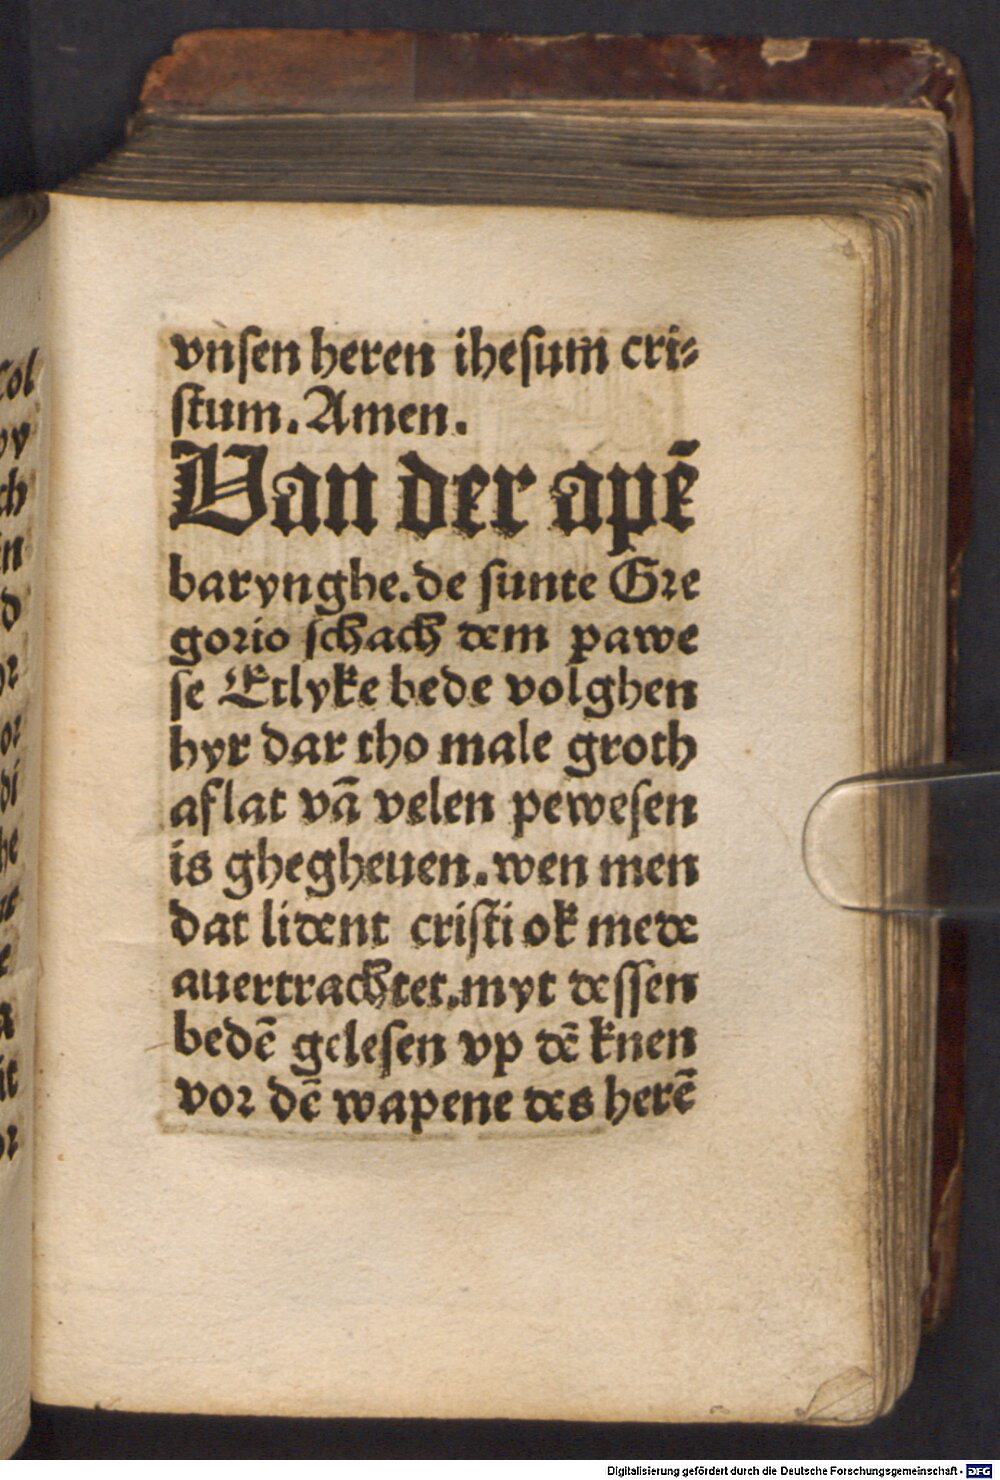 vnsen heren ihesum cri⸗
stum. Amen.
Van der apē
barynghe. de sunte Gre
gorio schach dem pawe
se Etlyke bede volghen
hyr dar tho male groth
aflat vā velen pewesen
is ghegheuen. wen men
dat lident cristi ok mede
auertrachtet. myt dessen
bedē gelesen vp dē knen
vor dē wapene des herē
Digitalisierung gefördert durch die Deutsche Forschungsgemeinschaft - DFG